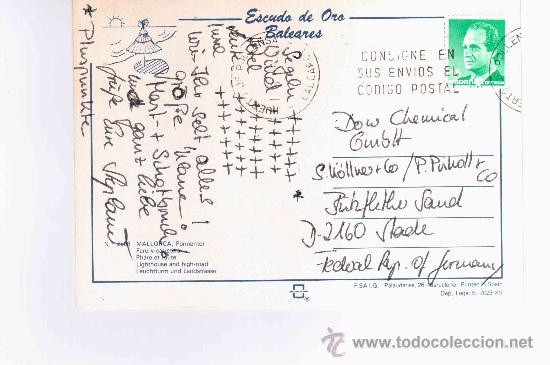 Escudo de Oro
Baleares
CONSIGNE EN
SUS ENVIOS EL
CODIGO POSTAL
España correos
Segeln ++++++
Wind ++++++
Hotel ++++++
Leute ++++++
Insel ++++++
wie Ihr seht alles
große Klasse!
und ganz liebe
Grüße Eure Stephanie
* Pluspunkte
*
Dow Chemical
GmbH
Bützflether Sand
D-2160 Stade
Federal Rep. of Germany
MALLORCA, Formentor
Faro y carretera
Phare et route
Lighthouse and high-road
Leuchtturm und Landstrasse
F.S.A.I.G. Palaudarias, 26 - Barcelona - Printed in Spain
Dep. Legal B. 7023-XV
®
todocoleccion.net